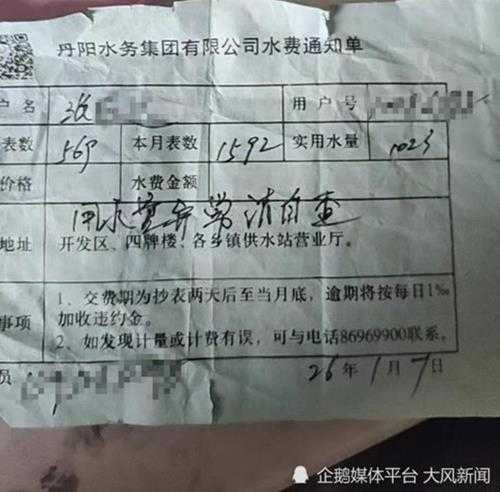 丹阳水务集团有限公司水费通知单
户名 张 用户号
表数 569 本月表数 1592 实用水量 1023
价格 水费金额
用水量异常请自查
地址 开发区、四牌楼、各乡镇供水站营业厅。
1、交费期为抄表两天后至当月底，逾期将按每日1‰
事项 加收违约金。
2、如发现计量或计费有误，可与电话86969900联系。
员 26年1月7日
企鹅媒体平台 大风新闻